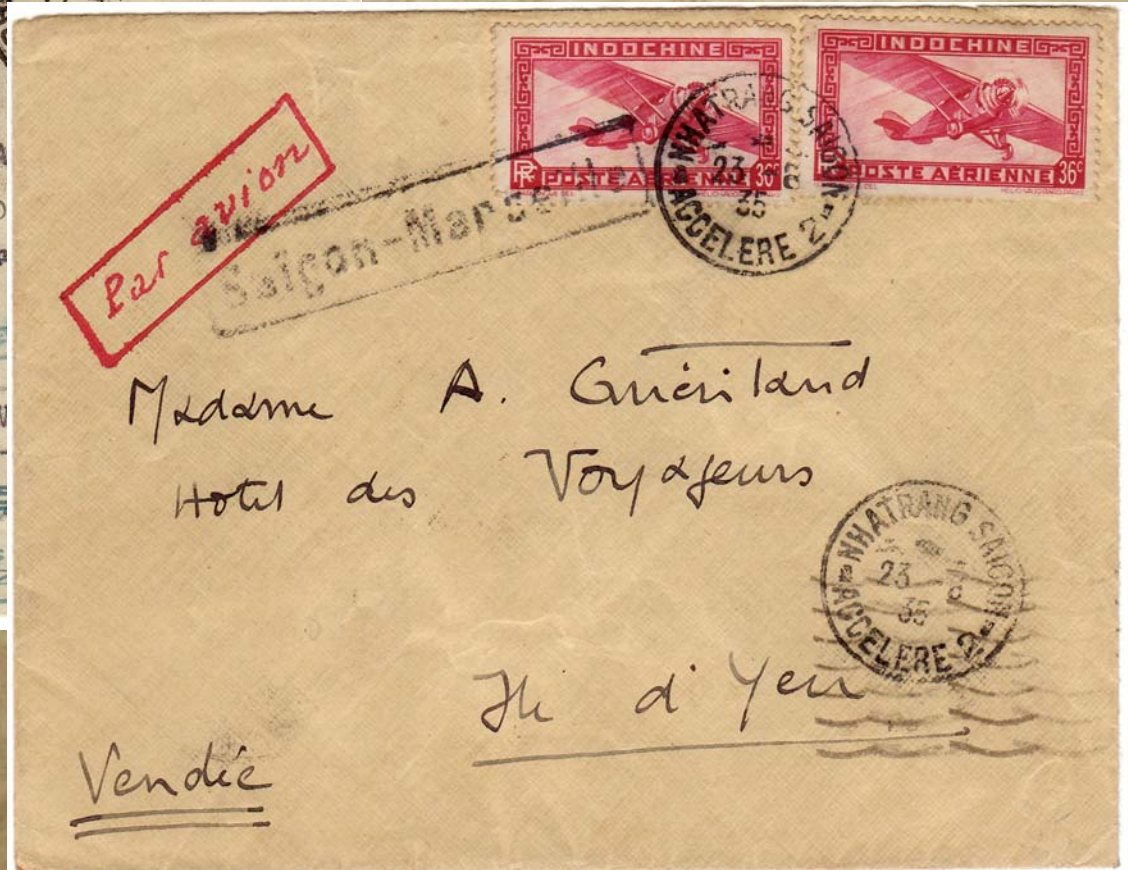 INDOCHINE
RF 36c
POSTE AÉRIENNE
INDOCHINE
36c
POSTE AÉRIENNE
NHATRANG SAIGON
23
35
ACCELERE 2
Par avion
Saigon-Marseille
Madame A.
Hotel des Voyageurs
NHATRANG SAIGON
23
35
ACCELERE 2
Ile d'Yeu
Vendée